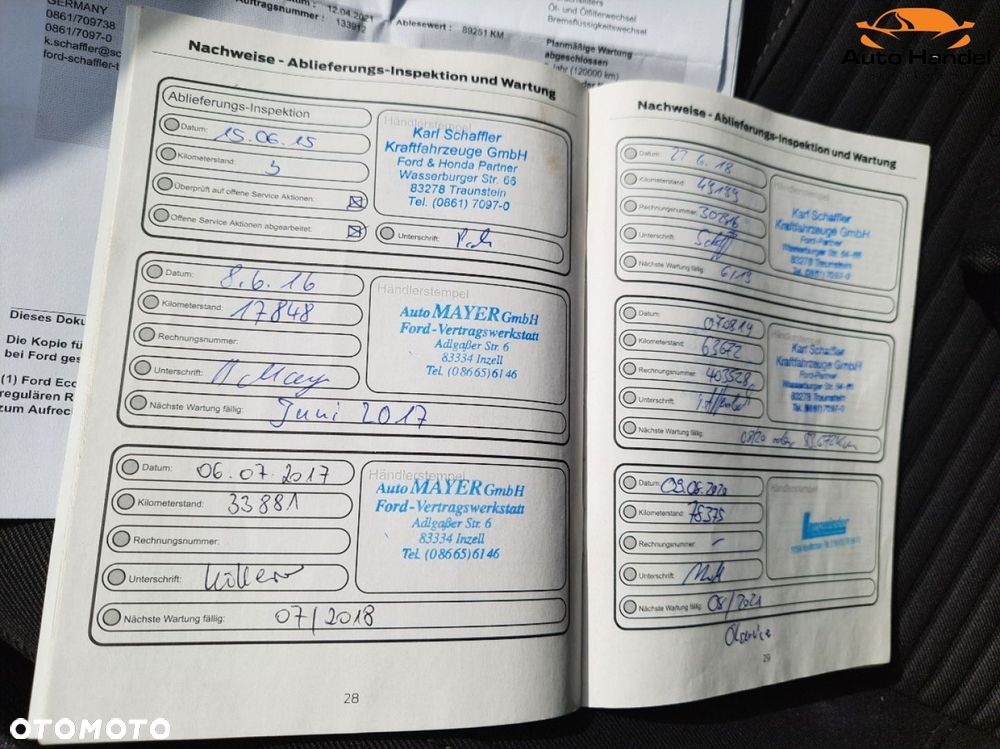 GERMANY
0861/709738
0861/7097-0
k.schaffler@sc
ford-schaffler-t
12.04.2021
Auftragsnummer : 133912
Ablesewert : 89251 KM
Öl- und Ölfilterwechsel
Bremsflüssigkeitswechsel
Planmäßige Wartung
abgeschlossen
(120000 km)
Auto Handel
Dieses Doku
Die Kopie fü
bei Ford ges
(1) Ford Eco
regulären R
zum Aufrec
Nachweise - Ablieferungs-Inspektion und Wartung
Ablieferungs-Inspektion
Datum: 15.06.15
Kilometerstand: 5
Überprüft auf offene Service Aktionen:
Offene Service Aktionen abgearbeitet:
Händlerstempel
Karl Schaffler
Kraftfahrzeuge GmbH
Ford & Honda Partner
Wasserburger Str. 66
83278 Traunstein
Tel. (0861) 7097-0
Unterschrift:
Datum: 8.6.16
Kilometerstand: 17848
Rechnungsnummer:
Unterschrift:
Nächste Wartung fällig: Juni 2017
Händlerstempel
Auto MAYER GmbH
Ford-Vertragswerkstatt
Adlgaßer Str. 6
83334 Inzell
Tel. (08665) 6146
Datum: 06.07.2017
Kilometerstand: 33881
Rechnungsnummer:
Unterschrift:
Nächste Wartung fällig: 07/2018
Händlerstempel
Auto MAYER GmbH
Ford-Vertragswerkstatt
Adlgaßer Str. 6
83334 Inzell
Tel. (08665) 6146
28
Nachweise - Ablieferungs-Inspektion und Wartung
Datum: 27.6.18
Kilometerstand: 49199
Rechnungsnummer: 30816
Unterschrift:
Nächste Wartung fällig: 6/19
Händlerstempel
Karl Schaffler
Kraftfahrzeuge GmbH
Ford-Partner
Wasserburger Str. 64-66
83278 Traunstein
Tel. (0861) 7097-0
Datum: 070819
Kilometerstand: 63672
Rechnungsnummer: 403528
Unterschrift:
Nächste Wartung fällig: 08/20 oder 83.672km
Karl Schaffler
Kraftfahrzeuge GmbH
Ford-Partner
Wasserburger Str. 64-66
83278 Traunstein
Tel. (0861) 7097-0
Datum: 09.06.2020
Kilometerstand: 78375
Rechnungsnummer: -
Unterschrift:
Nächste Wartung fällig: 08/2021
Händlerstempel
Ölservice
29
OTOMOTO